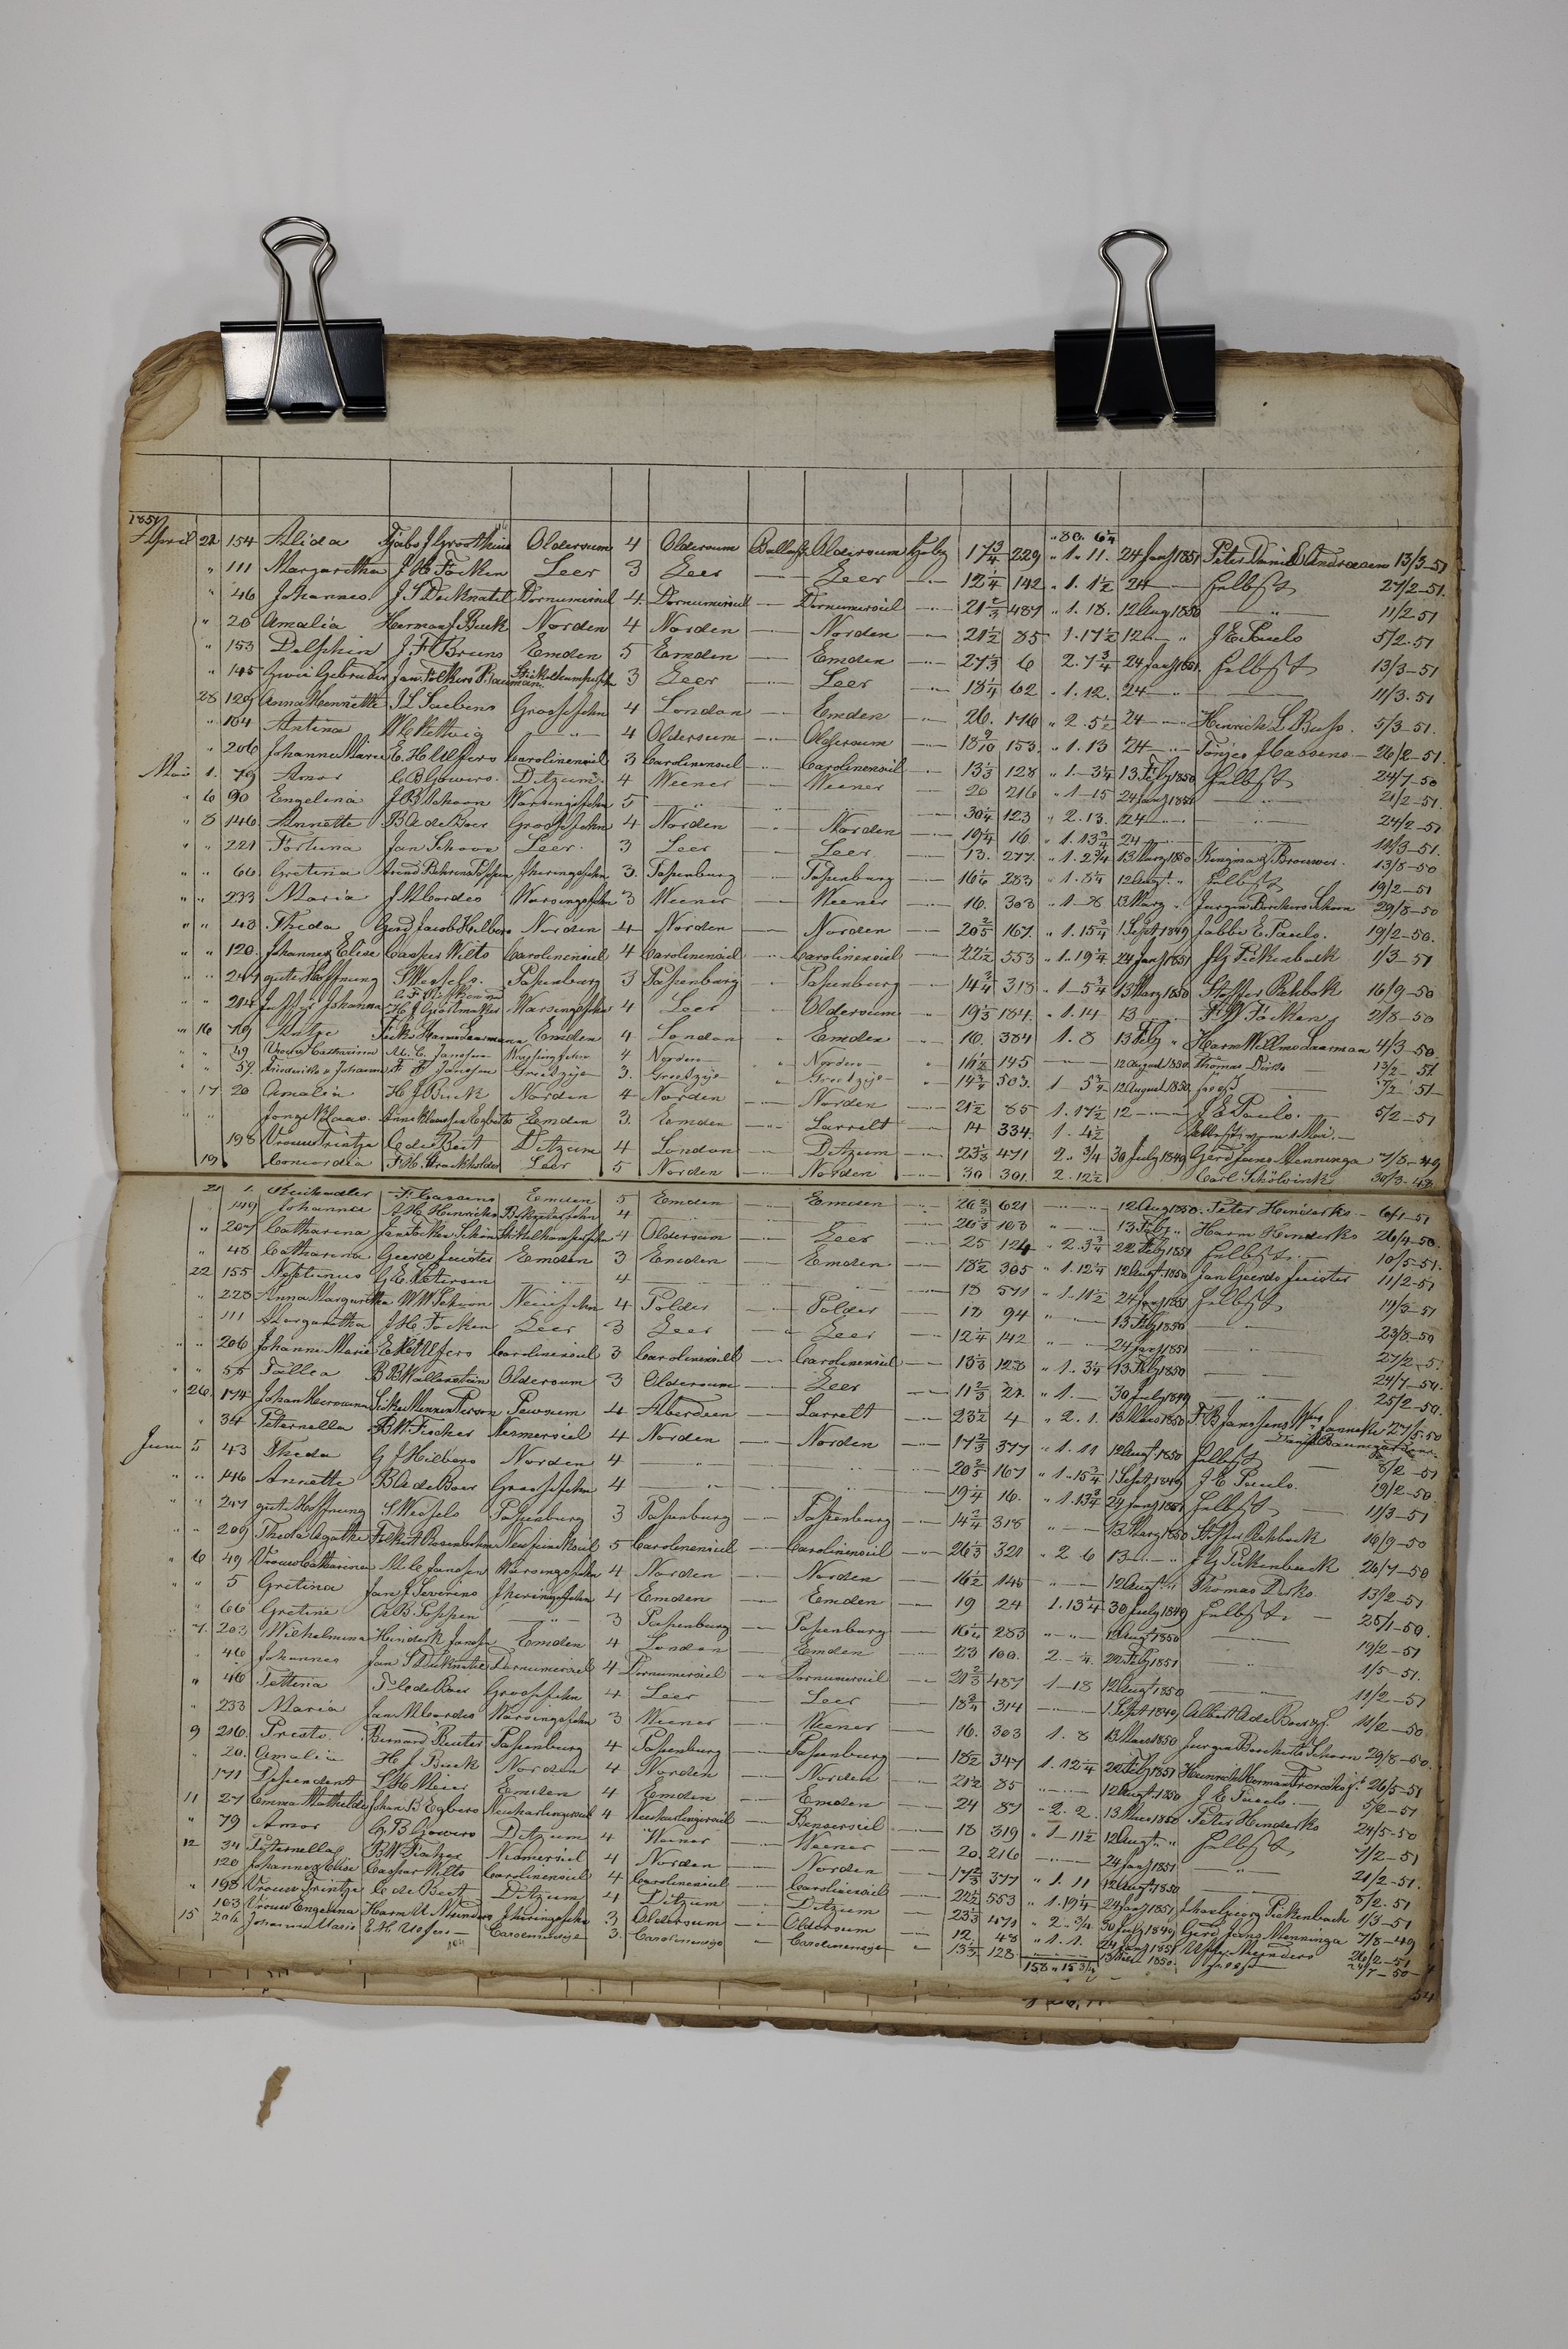 1851
" 80. 6 1/4
April 22 154 Alida Oldersum 4 Oldersum Ballast Oldersum 17 3/4 229 " 1. 11. 24 Jan 1851 Peter Daniel 13/3-51
" 111 Margaretha J H Focken Leer 3 Leer — Leer — 12 1/4 142 " 1. 1 1/2 24 — selbst 27/2-51.
" 46 Johannes Dornumersiel 4. Dornumersiel — Dornumersiel — 21 2/3 487 " 1. 18. 12 Aug 1850 — " — 11/2-51
" 20 Amalia Herman J Buck Norden 4 Norden — Norden — 21 1/2 85 1. 17 1/2 12 — " J E Pauls 5/2-51
" 153 Delphin J. F. Bruns Emden 5 Emden — Emden — 27 1/3 6 2. 7 3/4 24 Jan 1851. selbst 13/3-51
" 145 Zwei Gebruder Jan Folkers Bauman 3 Leer — Leer — 18 1/4 62 " 1. 12. 24 — — 11/3-51
28 129 Anna Henriette Groosfehn 4 London Emden — 26. 176 " 2 5 1/2 24 — Hinrich L Buss. 5/3-51.
" 164 Antina — " — 4 Oldersum — Oldersum — 18 9/10 153. " 1. 13 24 — Tönjes Hassens — 26/2-51.
" 206 Johanne Marie E. H. Ulfers Carolinensiel 3 Carolinensiel — Carolinensiel — 13 1/3 128 " 1. — 3 1/4 13 Feby 1850 selbst 24/7-50
Mai 1. 79 Amor C B Gowers. Ditzum. 4 Weener Weener — 20 216 " 1 — 15 24 Jan 1851 — " — 21/2-51.
" 6 90 Engelina J B Schoon Warsingsfehn 5 — " — — " — 30 1/4 123 " 2. 13. 24 — — 24/2-51
" 8 146. Annette B A de Boer Groosfehn 4 Norden Norden — 19 1/4 16 " 1. 13 3/4 24 — — 11/3-51.
" " 221 Fortuna Jan Schoon Leer. 3 Leer — Leer — 13. 277. " 1. 2 3/4 13 Marz 1850 Kingma & Brouwer. 13/8-50
" 66 Gretina Arend Behrens Poppen Jheringsfehn 3. Papenburg — Papenburg — 16 1/6 283 " 1. 8 1/4 12 Augt. " selbst 19/2-51
" " 233 Maria J M Cordes Warsingsfehn 3 Weener — Weener — 16. 303 " 1 — 8 13 Marz " Jurgen Borchers Schoon 29/8-50
" " 43 Theda Gerd Jacob Hilbers Norden 4 Norden — Norden — 20 2/5 167. " 1. 15 3/4 1 Sept 1849 Jabbe E. Pauls. 19/2-50.
" " 120. Johannes Elise Casper Wilts Carolinensiel 4 Carolinensiel Carolinensiel — 22 1/2 553 " 1. 19 1/4 24 Jan 1851 J G Pickenbach 1/3-51
" " 247 gute Hoffnung S Wessels. Papenburg 3 Papenburg " Papenburg — 14 3/4 318 " 1 — 5 3/4 13 Marz 1850 Stoffer Rehbok 16/9-50
" " 214 Johanna Warsingsfehn 4 Leer " Oldersum — 19 1/3 184. " 1. 14 13 — " F. W Focken 2/8-50
" 16 19 Emden 4 London " Emden — 16. 384 1. 8 13 Feby " Harm Willms Laarman 4/3-50.
" " 49 Vrouw Catharina M. C. Janssen Warsingsfehn 4 Norden — " Norden — " 16 1/2 145 — 12 August 1850. Thomas Dirks 13/2-51.
" " 57. Friederike & Johanna F. F. Janssen Greetzyl 3. Greetzyl " Greetzyl — " 14 1/2 503. 1 — 5 3/4 12 August 1850.
" 17 20 Amalia H J Buck Norden 4 Norden — Norden — 21 1/2 85 1. 17 1/2 12 — J. E. Pauls. — 5/2-51
" " Jonge Klaas. Emden 3. Emden — Larrelt — 14 334. 1. 4 1/2
198 Vrouw Trintje C de Beet Ditzum 4 London Ditzum — 23 1/3 471 2. 3/4 30 July 1849 Gerd Jans Menninga 7/8-49
19 Concordia F. H. Strackholder Leer 5 Norden Norden — 30 301. 2. 12 1/2 Carl Schölvink 30/3-48
21 1. F. Classens Emden 5 Emden Emden — 26 2/3 621 — 12 Aug 1850. Peter Hinderks — 6/1-51
149 Johanna A. H. Hinrichs 4 — 26 1/3 163 — 13 Feby " Harm Hinderks 26/4-50.
" 207 Catharina 4 Oldersum — Leer — 25 124 " 2. 3 3/4 22 Feby 1851 selbst. 10/5-51.
" 48 Catharina Geerd Juister Emden 3 Emden — Emden — 18 1/2 305 " 1. 12 1/4 12 Augt. 1850 Jan Geerds Juister 11/2-51
22 155 Neptunus G. E. Petersen — 4 — — 18 571 " 1. 11 1/2 24 Jan 1851 selbst 19/3-51
" 228 Anna Margaretha W W Schoon Neuefehn 4 Polder — Polder — 18 94 " — 13 Feby 1850 — 23/8-50
" 111 Margaretha J. H. Focken Leer 3 Leer — Leer — 12 1/4 142 " — 24 Jan 1851 — 27/2-51
" " 206 Johanne Marie E H Ulfers Carolinensiel 3 Carolinensiel — Carolinensiel — 13 1/3 128 " 1. 3 1/4 13 Feby 1850 — 24/7-50.
" " 55 B B Wallenstein Oldersum 3 Oldersum — Leer — 11 2/3 27. " 1. — 30 July 1849 — " — 25/2-50.
" 26. 174 Johan Hermann Pewsum 4 Aberdeen — Larrelt — 23 1/2 4 " 2. 1. 13 Marz 1850 27/5-50
" 34 Peternella B. W. Fischer Nesmersiel 4 Norden — Norden — 17 2/3 377 " 1. 11 12 Augt. 1850 selbst — 8/2-51
Juni 5 43 Theda G J Hilbers Norden 4 — — 20 2/5 167 " 1. 15 3/4 1 Sept 1849 J. E. Pauls. 19/2-50.
" " 146 Annette B A de Boer Groosfehn 4 — — 19 1/4 16. " 1. 13 3/4 24 Jan 1851 selbst — 11/3-51
" " 247 gute Hoffnung S Wessels Papenburg 3 Papenburg — Papenburg — 14 3/4 318 " — 13 Marz 1850 Stoffer Rehbock 16/9-50
" " 209 Theda Agathe Folkert Rosenbohm 5 Carolinensiel — Carolinensiel — 26 1/3 321 " 2 6 13 — J G Pickenback 26/7-50
" 6 49 Vrouw Catharina M. C Janssen Warsingsfehn 4 Norden — Norden — 16 1/2 145 — 12 Augt. " Thomas Dirks 13/2-51
" " 5 Gretina Jan J. Severins Jheringsfehn 4 Emden — Emden — 19 24 1. 13 1/4 30 July 1849 selbst. — 25/1-50.
" 66 Gretine A. B. Poppen — " — 3 Papenburg — Papenburg — 16 1/6 283 " — 12 Augt 1850 — 19/2-51
" 7. 203 Wilhelmina Hinderk Janssen Emden 4 London — Emden — 23 100. 2. — 1/4. 22 Feby 1851 " 1/5-51.
" 46 Johannes Dornumersiel 4 Dornumersiel — Dornumersiel — 21 2/3 487 1 — 18 12 Augt 1850 " 11/2-51
" 46 Tettina T C de Boer Groosfehn 4 Leer — Leer — 18 3/4 314 — 1 Sept 1849 Albert A de Boer 11/2-50
" 233 Maria Jan M Cordes Warsingsfehn 3 Weener — Weener — 16. 303 1. 8 13 Marz 1850 Jurgen Borcherts Schoon 29/8-50.
9 216. Presto. Bernard Reuter Papenburg 4 Papenburg — Papenburg — 18 1/2 347 1. 12 1/4 22 Feby 1851 Heinrich Herman 26/5-51
" 20. Amalia H. J. Buck Norden 4 Norden — Norden — 21 1/2 85 — 12 Augt 1850 J. E Pauls. — 5/2-51
171 Dependent L. H. Meier Emden 4 Emden — Emden — 24 87 " 2. 2. 13 Marz 1850 Peter Hinderks 24/5-50
11 27 Emma Mathilde Johan B Egbers Neuharlingersiel 4 Neuharlingersiel — Bensersiel — 18 319 " 1 — 11 1/2 12 Augt. " selbst 7/2-51
" 79 Amor C. B Gowers Ditzum 4 Weener — Weener — 20. 216 — 24 Jan 1851. — 21/2-51.
12 34 Peternella B W Fischer Nesmersiel 4 Norden — Norden — 17 2/3 377 " 1. 11 12 Augt 1850 — 8/2-51
120 Johannes Elise Caspar Wilts Carolinensiel 4 Carolinensiel — Carolinensiel — 22 1/2 553 " 1. 19 1/4 24 Jan 1851 Georg Pickenbach 1/3-51
" 198 Vrouw Trintje C de Beet Ditzum 4 Ditzum — Ditzum — 23 1/3 471 " 2. 3/4 30 July 1849 Gerd Jans Menninga 7/8-49
163 Vrouw Engelina Harm U Meinders Jheringsfehn 3 Oldersum — Oldersum — 12. 48 " 1. 1. 24 Jan 1851 Meinders 26/2-51
15 206 Johanne Marie E. H. Ulfers — 3. — 13 1/3 128 — 13 Marz 1850. 24/7-50
158 " 15 3/4
54